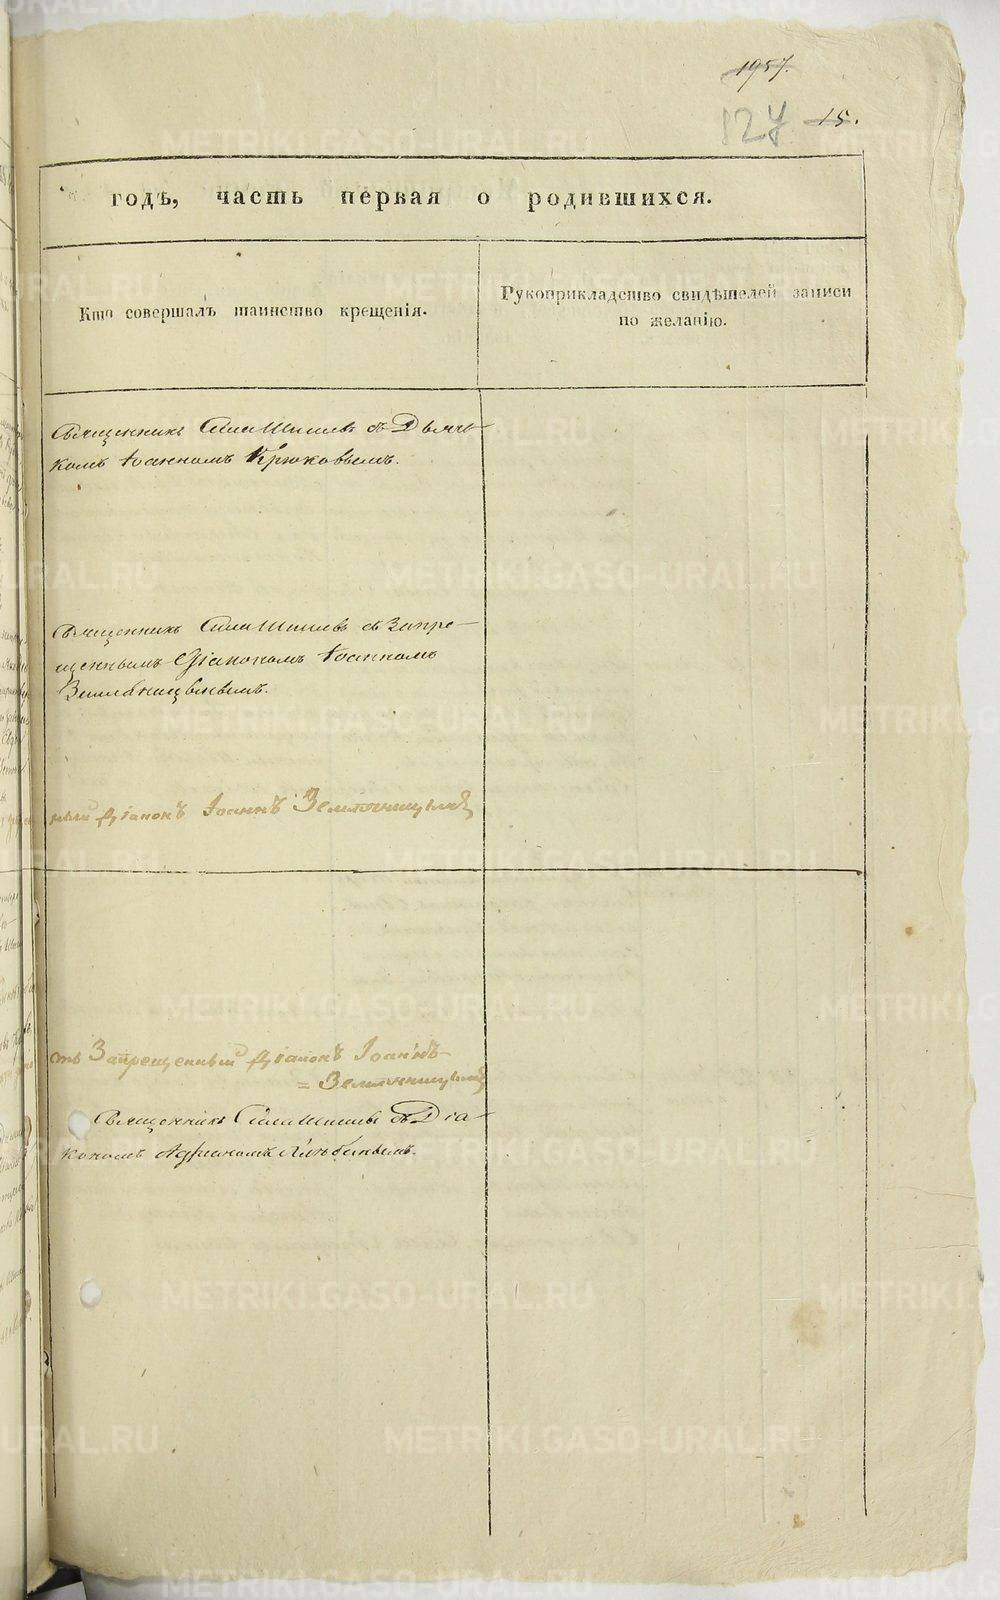 1957.
127 15.
годѣ, часть первая о родившихся.
Кто совершалъ таинство крещенія.
Рукоприкладство свидѣтелей записи
по желанію.
Священникъ Сила Шишевъ съ Дьяч-
комъ Іоанномъ Крюковымъ.
Священникъ Сила Шишевъ съ Запре-
щеннымъ Діакономъ Іоанномъ
ный Діаконъ Іоаннъ Земляницынъ
Запрещенный Діаконъ Іоаннъ
= Земляницынъ
Священникъ Сила Шишевъ съ Діа-
кономъ Адріаномъ Хлѣбинымъ.
METRIKI.GASO-URAL.RU